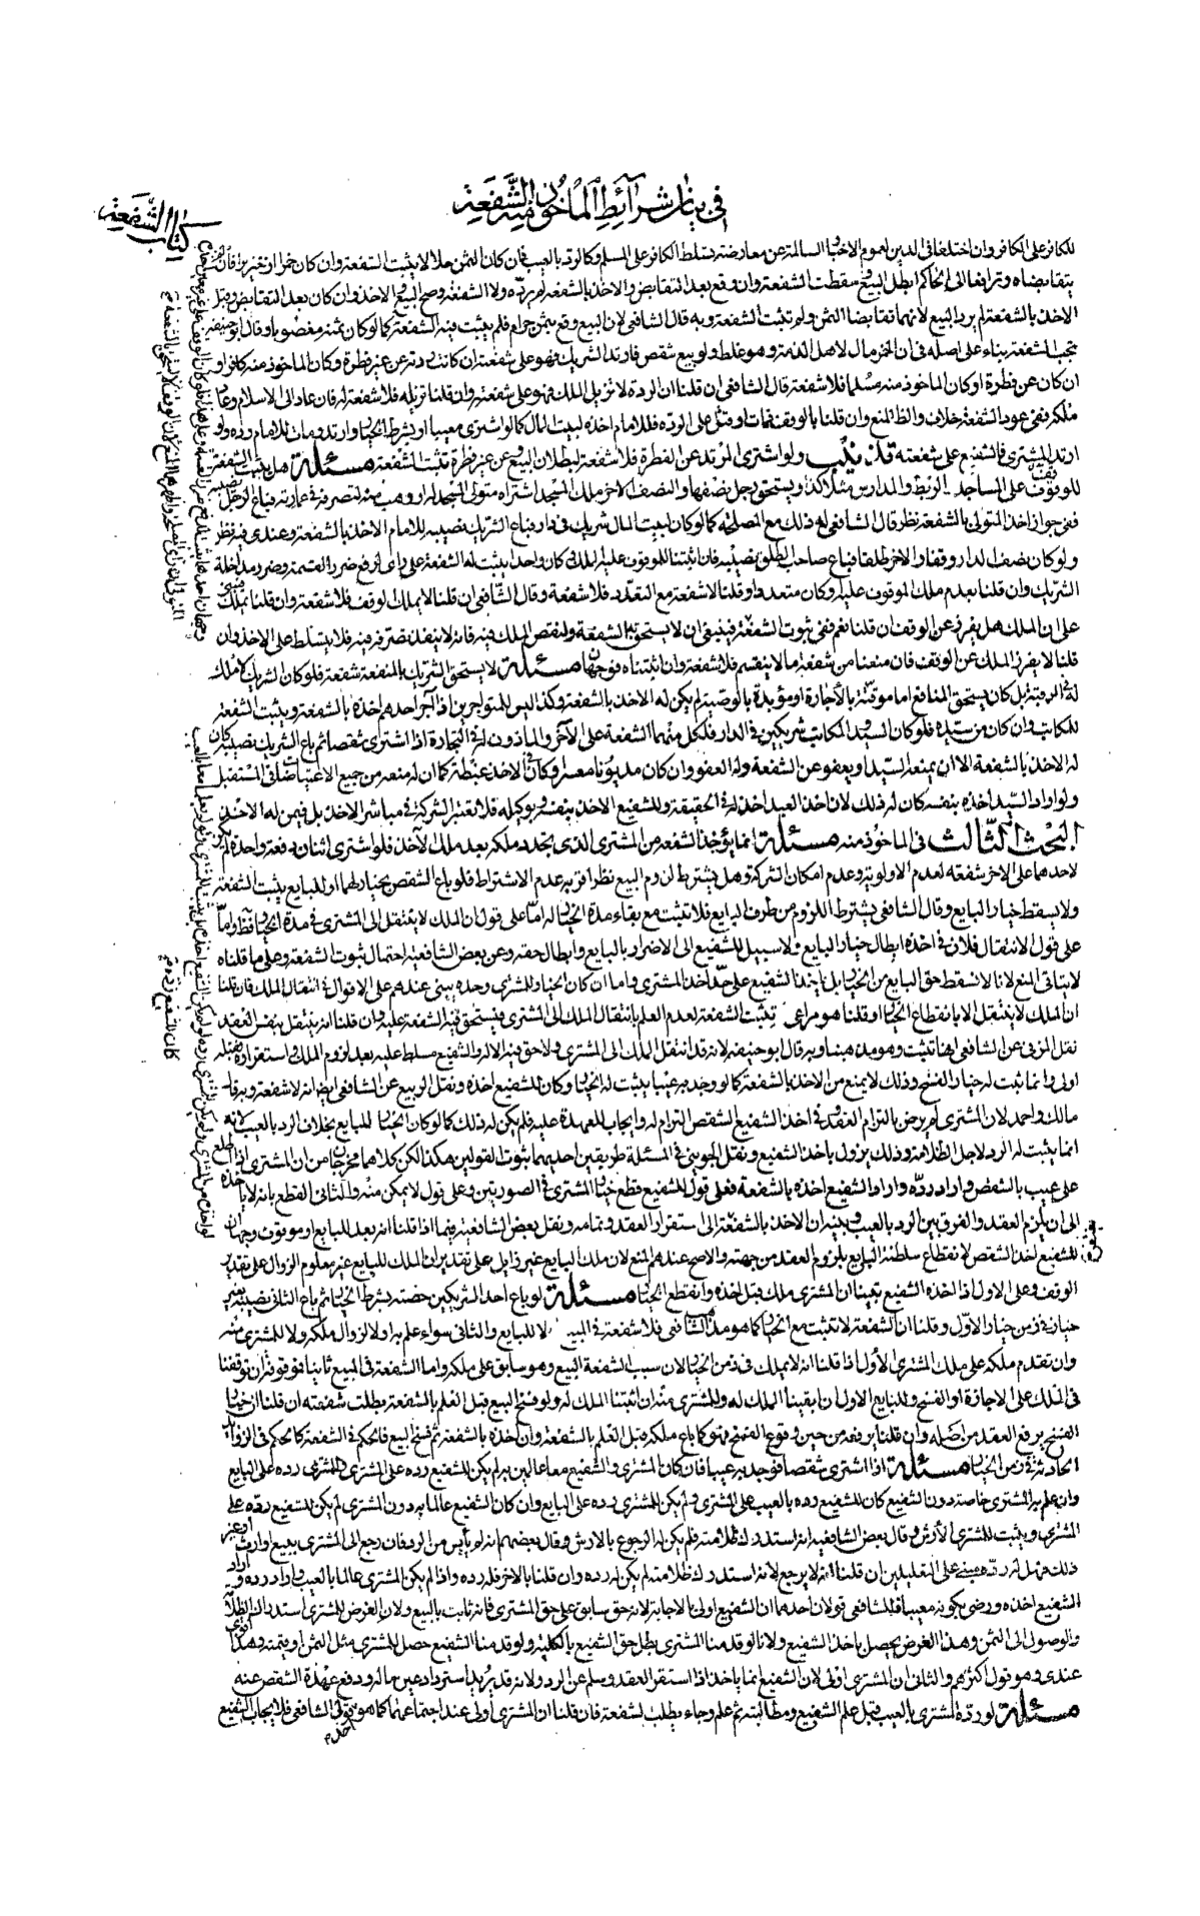 في بيان شرائط المأخوذ منه الشفعة
كتاب الشفعة
للكافر على الكافر وان اختلفا في الدين لعموم الاخبار السالمة عن معارضة تسلط الكافر على المسلم وكالرد بالعيب فان كان الثمن حلالا يثبت الشفعة وان كان خمرا او خنزيرا فان لم
يتقابضاه وترافعا الى الحاكم ابطل البيع وسقطت الشفعة وان وقع بعد التقابض والاخذ بالشفعة لم يرده ولا الشفعة وصح البيع والاخذ وان كان بعد التقابض وقبل
الاخذ بالشفعة لم يرد البيع لانهما تقابضا الثمن ولم تثبت الشفعة وبه قال الشافعي لان البيع وقع بثمن حرام فلم يثبت فيه الشفعة كما لو كان بثمنه مغصوبا وقال ابو حنيفة
تجب الشفعة بناء على اصله في ان الخمر مال لاهل الذمة وهو غلط ولو بيع شقص فارتد الشريك فهو على شفعته ان كانت ردته عن غير فطرة وكان المأخوذ منه كافرا و
ان كان عن فطرة او كان المأخوذ منه مسلما فلا شفعة قال الشافعي ان قلنا ان الردة لا تزيل الملك فهو على شفعته وان قلنا تزيله فلا شفعة له فان عاد الى الاسلام وعاد
ملكه ففي عود الشفعة خلاف والظ المنع وان قلنا بالوقف فمات او قتل على الردة فللامام اخذه لبيت المال كما لو اشترى معيبا او بشرط الخيار وارتد ومات للامام رده ولو
ارتد المشترى فالشفيع على شفعته تذنيب ولو اشترى المرتد عن الفطرة فلا شفعة لبطلان البيع وعن غير فطرة تثبت الشفعة مسئلة هل يثبت الشفعة
للوقوف على المساجد والربط والمدارس مثلا كدار يستحق رجل نصفها والنصف الآخر ملك المسجد اشتراه متولى المسجد له او وهب منه لتصرفه في عمارته فباع الرجل نصيبه
ففي جواز اخذ المتولي بالشفعة نظر قال الشافعي له ذلك مع المصلحة كما لو كان لبيت المال شريك في دار فباع الشريك نصيبه للامام الاخذ بالشفعة وعندي فيه نظر
ولو كان نصف الدار وقفا والآخر طلقا فباع صاحب الطلق نصيبه فان اثبتنا للموقوف عليه الملك وكان واحدا يثبت له الشفعة على رأى لرفع ضرر القسمة وضرر مداخلة
الشريك وان قلنا بعدم ملك الموقوف عليه او كان متعددا وقلنا لا شفعة مع التعدد فلا شفعة وقال الشافعي ان قلنا لا يملك الوقف فلا شفعة وان قلنا يملك فيبنى
على ان الملك هل يفرز عن الوقف ان قلنا نعم ففي ثبوت الشفعة فينبغي ان لا يستحق به الشفعة ولنقص الملك فيه فانه لا ينفذ تصرفه فيه فلا يتسلط على الاخذ وان
قلنا لا يفرز الملك عن الوقف فان منعنا من شفعة ما لا ينقسم فلا شفعة وان اثبتناه فوجهان مسئلة لا يستحق الشريك بالمنفعة شفعة فلو كان الشريك لا ملك
له في الرقبة بل كان يستحق المنافع اما موقتة بالاجارة او مؤبدة بالوصية لم يكن له الاخذ بالشفعة وكذا ليس للمتواجرين اذا آجر احدهم اخذه بالشفعة ويثبت الشفعة
للمكاتب وان كان من سيده فلو كان السيد والمكاتب شريكين في الدار فلكل منهما الشفعة على الآخر والمأذون له في التجارة اذا اشترى شقصا ثم باع الشريك نصيبه كان
له الاخذ بالشفعة الا ان يمنعه السيد او يعفو عن الشفعة وله العفو وان كان مديونا معسرا وكان في الاخذ غبطة كما ان له منعه من جميع الاعتياضات في المستقبل
ولو اراد السيد اخذه بنفسه كان له ذلك لان اخذ العبد اخذ له في الحقيقة وللشفيع الاخذ بنفسه وبوكيله فلا تعتبر الشركة في مباشر الاخذ بل فيمن له الاخذ
البحث الثالث في المأخوذ منه مسئلة انما يؤخذ الشفعة من المشترى الذي يتجدد ملكه بعد ملك الآخذ فلو اشترى اثنان دفعة واحدة لم يكن
لاحدهما على الآخر شفعة لعدم الاولوية وعدم امكان الشركة وهل يشترط لزوم البيع نظر اقربه عدم الاشتراط فلو باع الشقص بخيار لهما او للبايع يثبت الشفعة
ولا يسقط خيار البايع وقال الشافعي يشترط اللزوم من طرف البايع فلا تثبت مع بقاء مدة الخيار له اما على قول ان الملك لا ينتقل الى المشترى في مدة الخيار فظ واما
على قول الانتقال فلان في اخذه ابطال خيار البايع ولا سبيل للشفيع الى الاضرار بالبايع وابطال حقه وعن بعض الشافعية احتمال ثبوت الشفعة وعلى ما قلناه
لا يتاتى المنع لانا لا نسقط حق البايع من الخيار بل ياخذ الشفيع على حد اخذ المشترى واما ان كان الخيار للمشترى وحده يبنى عندهم على الاقوال في انتقال الملك فان قلنا
ان الملك لا ينتقل الا بانقطاع الخيار او قلنا هو مراعى لم تثبت الشفعة لعدم العلم بانتقال الملك الى المشترى فيستحق فيه الشفعة عليه وان قلنا انه ينتقل بنفس العقد
نقل المزني عن الشافعي انها تثبت وهو مذهبنا وبه قال ابو حنيفة لانه قد انتقل الملك الى المشترى ولا حق فيه الا له والشفيع مسلط عليه بعد لزوم الملك واستقراره فقبله
اولى وانما ثبت له خيار الفسخ وذلك لا يمنع من الاخذ بالشفعة كما لو وجد به عيبا يثبت له الخيار وكان للشفيع اخذه ونقل الربيع عن الشافعي ايضا انه لا شفعة وبه قال
مالك واحمد لان المشترى لم يرض بالتزام العقد وفي اخذ الشفيع الشقص التزام له وايجاب للعهدة عليه فلم يكن له ذلك كما لو كان الخيار للبايع بخلاف الرد بالعيب لانه
انما يثبت له الرد لاجل الظلامة وذلك يزول باخذ الشفيع ونقل الجويني في المسئلة طريقين احديهما ثبوت القولين هكذا لكن كلاهما مخرجان من ان المشترى اذا اطلع
على عيب بالشقص واراد رده واراد الشفيع اخذه بالشفعة فعلى قول للشفيع قطع خيار المشترى في الصورتين وعلى قول لا يمكن منه والثاني القطع بانه لا ياخذه
الى ان يلزم العقد والفرق بين الرد بالعيب وبينه ان الاخذ بالشفعة الى استقرار العقد وتمامه ونقل بعض الشافعية فيما اذا قلنا انه بعد للبايع او موقوف وجهان
للشفيع اخذ الشقص لانقطاع سلطنة البايع بلزوم العقد من جهته والاصح عندهم المنع لان ملك البايع غير زايل على تقدير ان الملك للبايع غير معلوم الزوال على تقدير
الوقف وعلى الاول اذا اخذه الشفيع تبينا ان المشترى ملك قبل اخذه وانقطع الخيار مسئلة لو باع احد الشريكين حصته بشرط الخيار ثم باع الثاني نصيبه بغير
خيار في زمن خيار الاول وقلنا ان الشفعة لا تثبت مع الخيار كما هو مذهب الشافعي فلا شفعة في المبيع اولا للبايع الثاني سواء علم به او لا لزوال ملكه ولا للمشترى منه
وان تقدم ملكه على ملك المشترى الاول اذا قلنا انه لا يملك في زمن الخيار لان سبب الشفعة البيع وهو سابق على ملكه واما الشفعة في المبيع ثانيا فموقوفة ان توقفنا
في الملك على الاجازة او الفسخ وللبايع الاول ان ابقينا الملك له وللمشترى منه ان اثبتنا الملك له ولو فسخ البيع قبل العلم بالشفعة بطلت شفعته ان قلنا ان خيار
الفسخ يرفع العقد من اصله وان قلنا يرفعه من حين وقوع الفسخ فهو كما باع ملكه قبل العلم بالشفعة وان اخذه بالشفعة ثم فسخ البيع فالحكم في الشفعة كالحكم في الزوائد
الحادثة في زمن الخيار مسئلة اذا اشترى شقصا فوجد به عيبا فان كان المشترى والشفيع معا عالمين به لم يكن للشفيع رده على المشترى ولا للمشترى رده على البايع
وان علم به المشترى خاصة دون الشفيع كان للشفيع رده بالعيب على المشترى ولم يكن للمشترى رده على البايع وان كان الشفيع عالما به دون المشترى لم يكن للشفيع رده على
المشترى ويثبت للمشترى الارش وقال بعض الشافعية انه استدرك ظلامته فلم يكن له الرجوع بالارش وقال بعضهم انه لم يأيس من الرد فان رجع الى المشترى ببيع او ارث او غير
ذلك فهل له رده مبنى على التعليلين ان قلنا انه لا يرجع لانه استدرك ظلامته لم يكن له رده وان قلنا بالآخر فله رده واذا لم يكن المشترى عالما بالعيب واراد رده واراد
الشفيع اخذه ورضى بكونه معيبا فللشافعي قولان احدهما ان الشفيع اولى بالاجابة لانه حق سابق على حق المشترى فانه ثابت بالبيع ولان الغرض للمشترى استدراك الظلامة
والوصول الى الثمن وهذا الغرض يحصل باخذ الشفيع ولانا لو قدمنا المشترى بطل حق الشفيع بالكلية ولو قدمنا الشفيع حصل للمشترى مثل الثمن او قيمته وهذا اقوى
عندى وهو قول اكثرهم والثاني ان المشترى اولى لان الشفيع انما ياخذ اذا استقر العقد وسلم عن الرد ولانه قد يريد استرداد عين ماله ودفع عهدة الشقص عنه
مسئلة لو رده المشترى بالعيب قبل علم الشفيع ومطالبته ثم علم وجاء يطلب الشفعة فان قلنا ان المشترى اولى عند اجتماعهما كما هو قول الشافعي فلا يجاب الشفيع